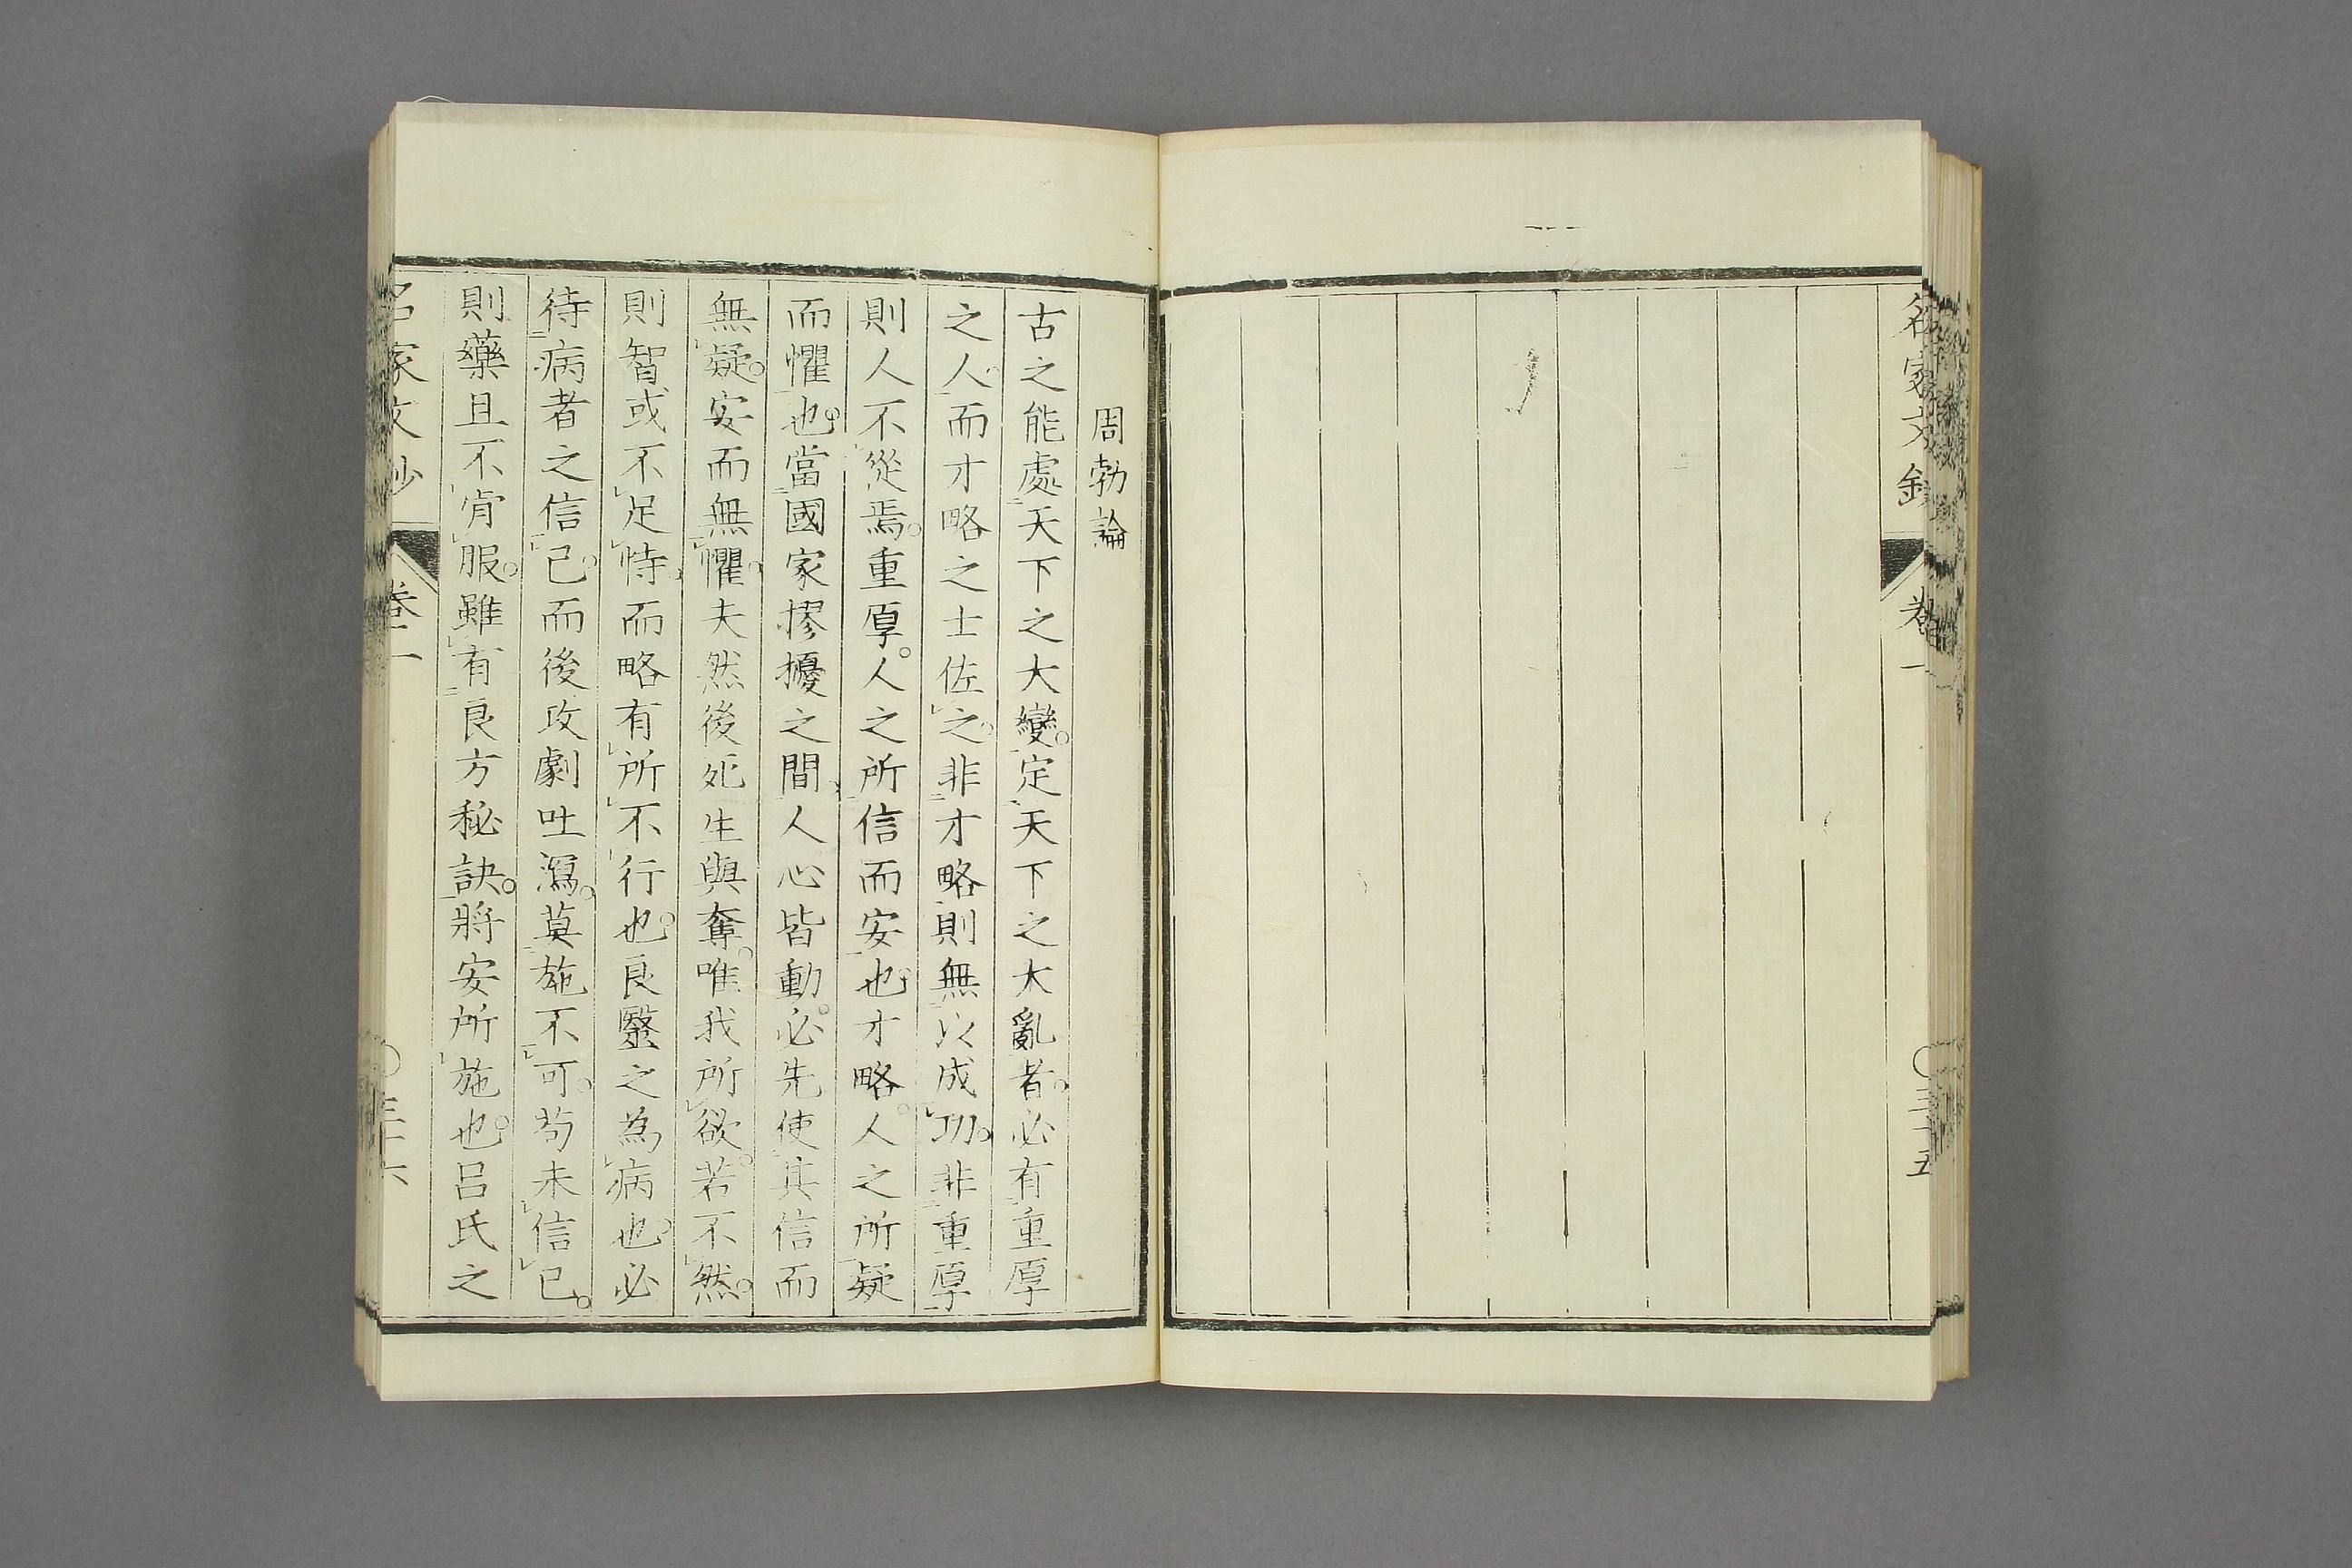 名家文鈔
卷一
三十五
周勃論
古之能處天下之大變。定天下之大亂者。必有重厚
之人。而才略之士佐之。非才略則無以成功。非重厚
則人不從焉。重厚。人之所信而安也。才略。人之所疑
而懼也。當國家摎擾之間、人心皆動。必先使其信而
無疑。安而無懼。夫然後死生與奪。唯我所欲。若不然。
則智或不足恃。而略有所不行也。良毉之為病也。必
待病者之信己。而後攻劇吐瀉。莫施不可。苟未信己。
則藥且不肯服。雖有良方秘訣。將安所施也。呂氏之
名家文鈔
卷一
三十六